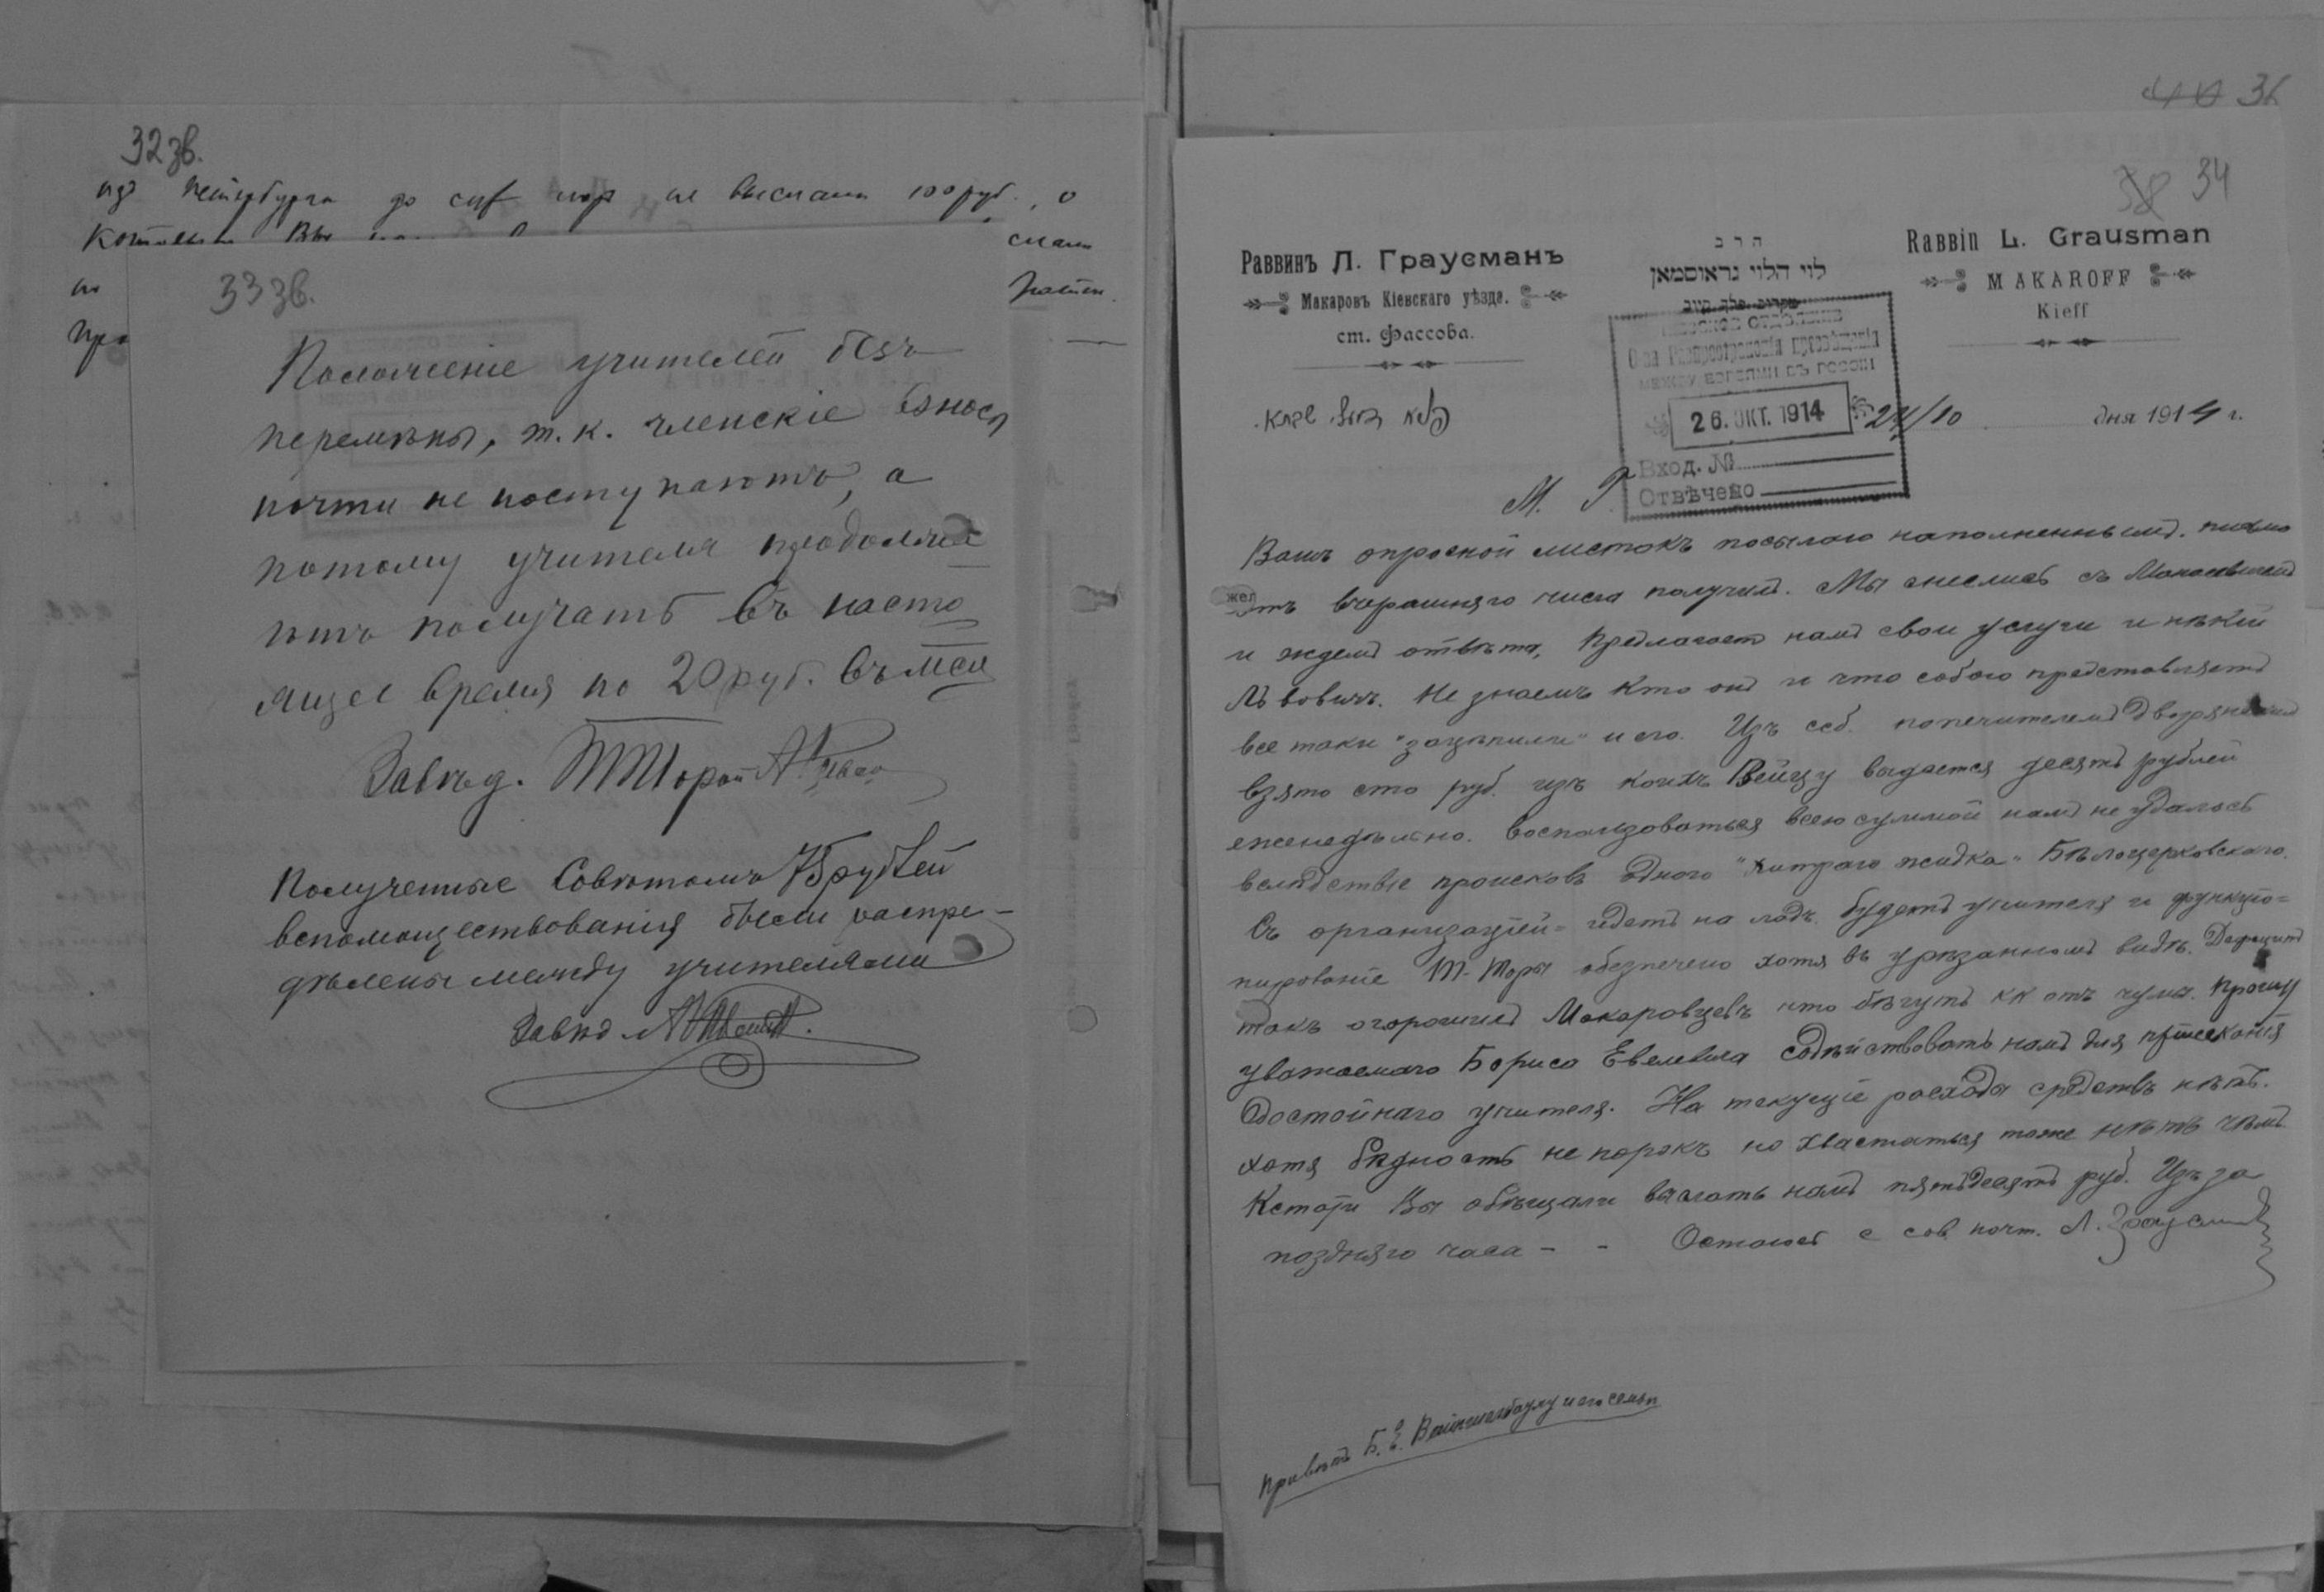 32 зв.
изъ Петербурга до сих пор не выслали 100 руб., о
слали
33 зв.
Положеніе учителей безъ
перемѣны, т.к. членскіе взносы
почти не поступаютъ, а
потому учителя продолжа
ютъ получать въ насто
ящее время по 20 руб. въ мѣся
Завѣд.
Полученные Совѣтомъ 75 рублей
вспомоществованія были распре-
дѣлены между учителями
Завѣд
40 36
38 34
Раввинъ Л. Граусманъ
Макаровъ Кіевскаго уѣзда.
ст. Фассова.
הרב
לוי הלוי גראוסמאן
מקרוב פלך קיוב
Rabbin L. Grausman
MAKAROFF
Kieff
КІЕВСКОЕ ОТДѢЛЕНІЕ
О-ва Распространенія Просвѣщенія
МЕЖДУ ЕВРЕЯМИ ВЪ РОССІИ
26. ОКТ. 1914
Вход. №
Отвѣчено
24/10 дня 1914 г.
М. Г.
Вашъ опросной листокъ посылаю наполненнымъ. письмо
отъ вчерашняго числа получил. Мы снеслись съ
и ждемъ отвѣта, Предлагает намъ свои услуги и нѣкій
Львовичъ. Не знаемъ кто онъ и что собою представляетъ
все таки "зацѣпили" и его. Изъ ссб. попечителемъ
взято сто руб. изъ коихъ Вейцу выдается десять рублей
еженедѣльно. Воспользоваться всею суммой намъ не удалось
вслѣдствіе происковъ одного "хитраго жидка" Бѣлоцерковскаго.
Съ организаціей идетъ на ладъ. будетъ учителя и функціо-
нированіе Т-Торы обезпечено хотя въ урѣзанномъ видѣ. Дефицитъ
такъ огорошилъ Макаровцевъ что бѣгутъ кк отъ чумы. Прошу
уважаемаго Бориса Евелевича содѣйствовать намъ для пріисканія
достойнаго учителя. На текущіе расходы средствъ нѣтъ.
хотя бѣдность не порокъ но хвастаться тоже нѣтъ чѣмъ
Кстати Вы обѣщали выслать намъ пятьдесятъ руб. Изъ за
поздняго часа - - Остаюсь с сов почт. Л. Граусман
Привѣтъ Б. Е. и его семьѣ